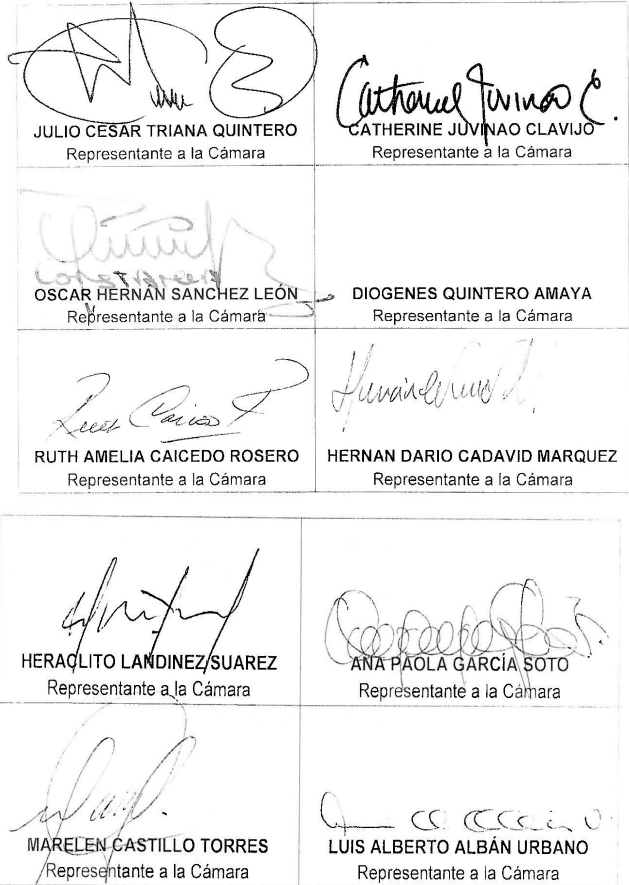 JULIO CESAR TRIANA QUINTERO
Representante a la Cámara
Catherine Juvinao C.
CATHERINE JUVINAO CLAVIJO
Representante a la Cámara
OSCAR HERNAN SANCHEZ LEÓN
Representante a la Cámara
DIOGENES QUINTERO AMAYA
Representante a la Cámara
RUTH AMELIA CAICEDO ROSERO
Representante a la Cámara
HERNAN DARIO CADAVID MARQUEZ
Representante a la Cámara
HERACLITO LANDINEZ SUAREZ
Representante a la Cámara
ANA PAOLA GARCÍA SOTO
Representante a la Cámara
MARELEN CASTILLO TORRES
Representante a la Cámara
LUIS ALBERTO ALBÁN URBANO
Representante a la Cámara